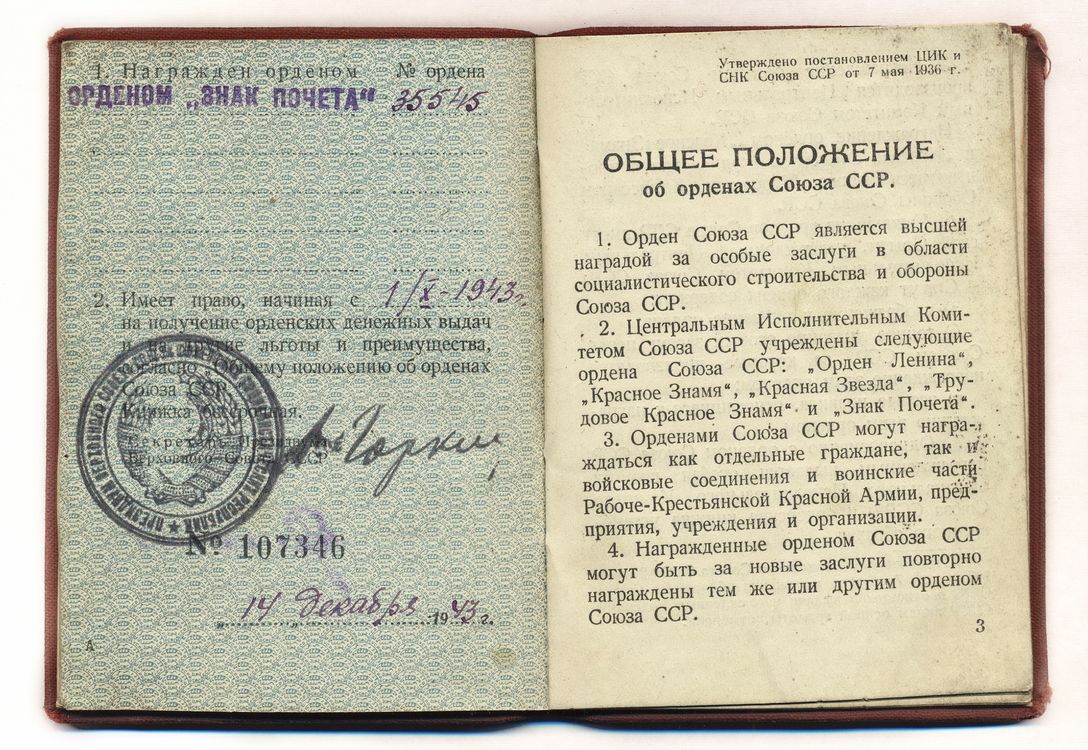 1. Награжден орденом № ордена
ОРДЕНОМ „ЗНАК ПОЧЕТА" 35545
2. Имеет право, начиная с 1/X-1943г.
на получение орденских денежных выдач
и на другие льготы и преимущества,
согласно Общему положению об орденах
Союза ССР.
Книжка бессрочная.
Секретарь Президиума
Верховного Совета СССР
А Горкин
№ 107346
„ 14 " декабря 1943 г.
А
Утверждено постановлением ЦИК и
СНК Союза ССР от 7 мая 1936 г.
ОБЩЕЕ ПОЛОЖЕНИЕ
об орденах Союза ССР.
1. Орден Союза ССР является высшей
наградой за особые заслуги в области
социалистического строительства и обороны
Союза ССР.
2. Центральным Исполнительным Коми-
тетом Союза ССР учреждены следующие
ордена Союза ССР: „Орден Ленина",
„Красное Знамя", „Красная Звезда", „Тру-
довое Красное Знамя" и „Знак Почета".
3. Орденами Союза ССР могут награ-
ждаться как отдельные граждане, так и
войсковые соединения и воинские части
Рабоче-Крестьянской Красной Армии, пред-
приятия, учреждения и организации.
4. Награжденные орденом Союза ССР
могут быть за новые заслуги повторно
награждены тем же или другим орденом
Союза ССР.
3